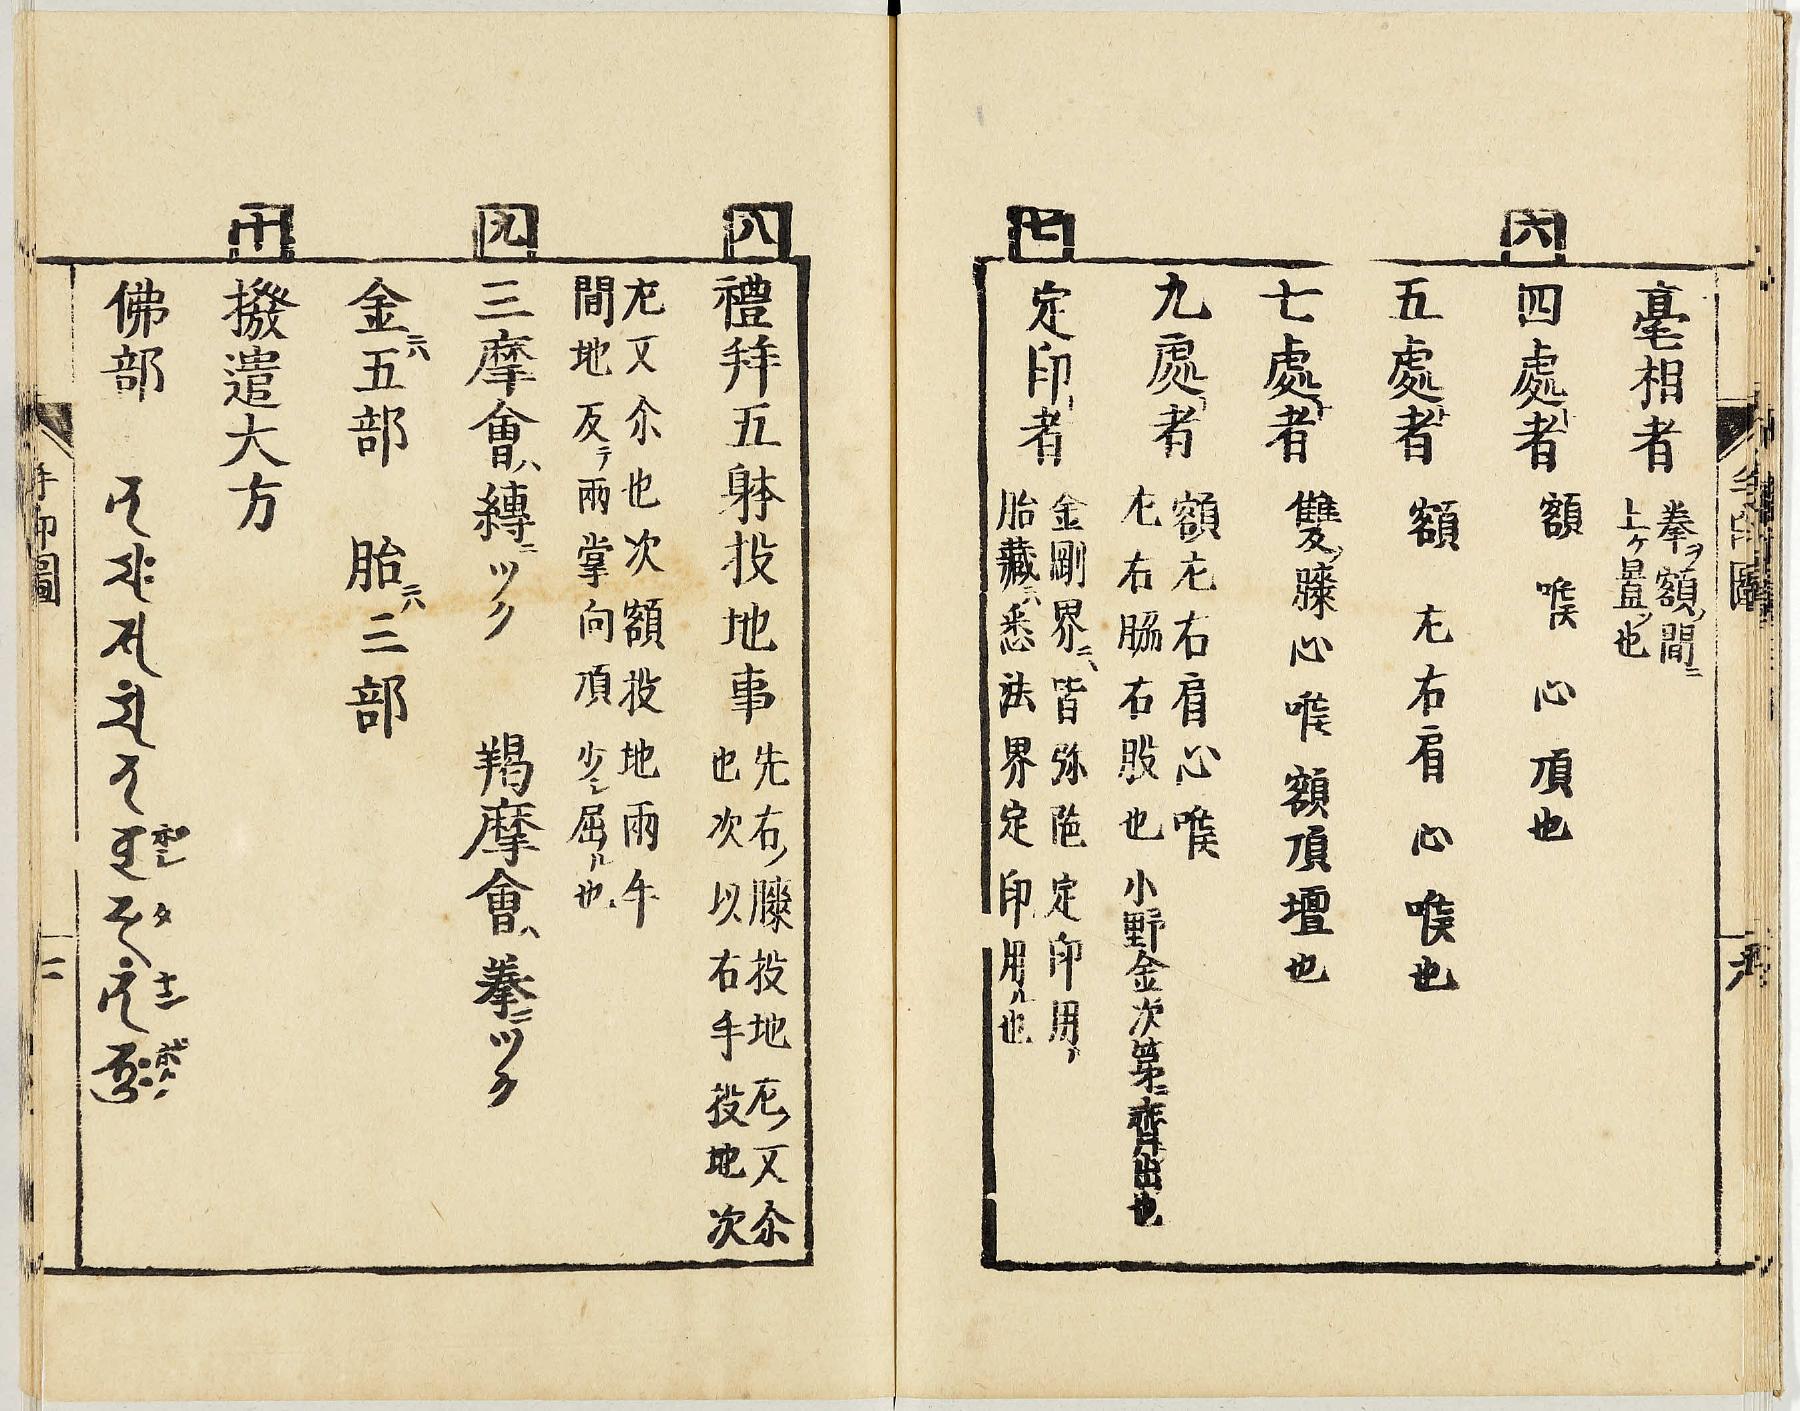 六
毫相者 拳ヲ額ノ間ニ
上ケ置ソ也
四處者 額 喉 心 頂也
五處者 額 左右肩 心 喉也
七處者 雙膝 心 喉 額頂壇也
九處者 額左右肩心喉
左右脇右股也 小野金次第ニ齊出也
七
定印者 金剛界ニハ皆弥陀定印用ソ
胎藏ニハ悉法界定印用ル也
八
禮拜五躰投地事 先右ノ膝投地左ノ又尒
也次以右手投地次
左又尒也次額投地兩手
間地反テ兩掌向頂少シ屈ル也
九
三摩會ハ縛ニツク 羯摩會ハ拳ニツク
金ニハ五部 胎ニハ三部
十
撥遣大方
佛部
手印圖
二